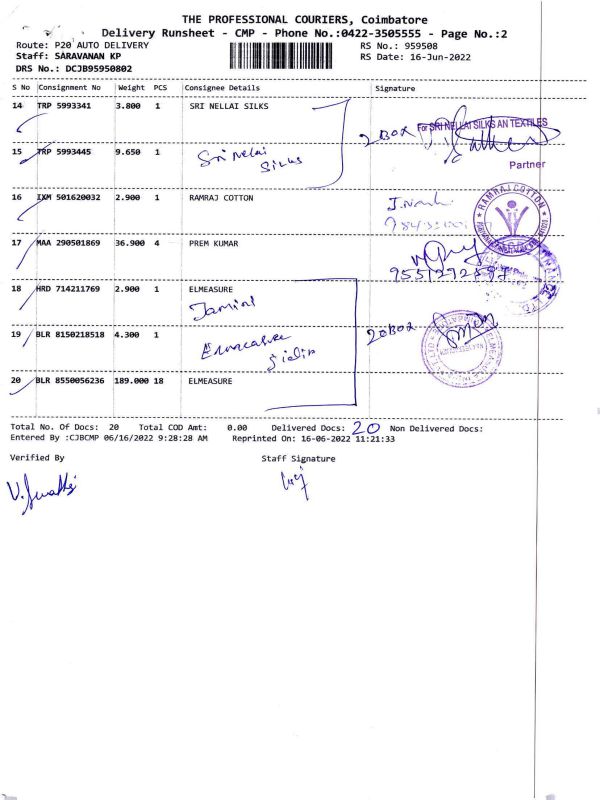 THE PROFESSIONAL COURIERS, Coimbatore
Delivery Runsheet - CMP - Phone No.:0422-3505555 - Page No.:2
Route: P20 AUTO DELIVERY RS No.: 959508
Staff: SARAVANAN KP RS Date: 16-Jun-2022
DRS No.: DCJB95950802
S No Consignment No Weight PCS Consignee Details Signature
14 TRP 5993341 3.800 1 SRI NELLAI SILKS
2 Box For SRI NELLAI SILKS AN TEXTILES
15 TRP 5993445 9.650 1 Sri Nellai
Silks
Partner
16 IXM 501620032 2.900 1 RAMRAJ COTTON
RAMRAJ COTTON
17 MAA 290501869 36.900 4 PREM KUMAR
18 HRD 714211769 2.900 1 ELMEASURE
20 Box
19 BLR 8150218518 4.300 1 Elmeasure
20 BLR 8550056236 189.000 18 ELMEASURE
Total No. Of Docs: 20 Total COD Amt: 0.00 Delivered Docs: 20 Non Delivered Docs:
Entered By :CJBCMP 06/16/2022 9:28:28 AM Reprinted On: 16-06-2022 11:21:33
Verified By Staff Signature